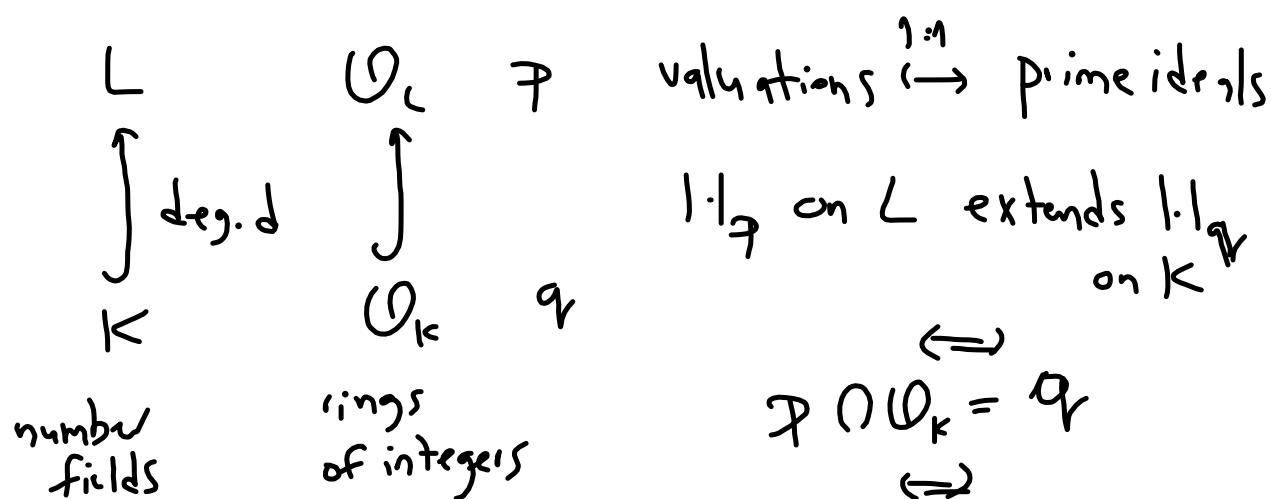 L 𝒪_L 𝔭 valuations ⟷ 1:1 prime ideals
deg. d |·|_𝔭 on L extends |·|_𝔮
on K
K 𝒪_K 𝔮
⟺
number fields
rings of integers
𝔭 ∩ 𝒪_K = 𝔮
⟺